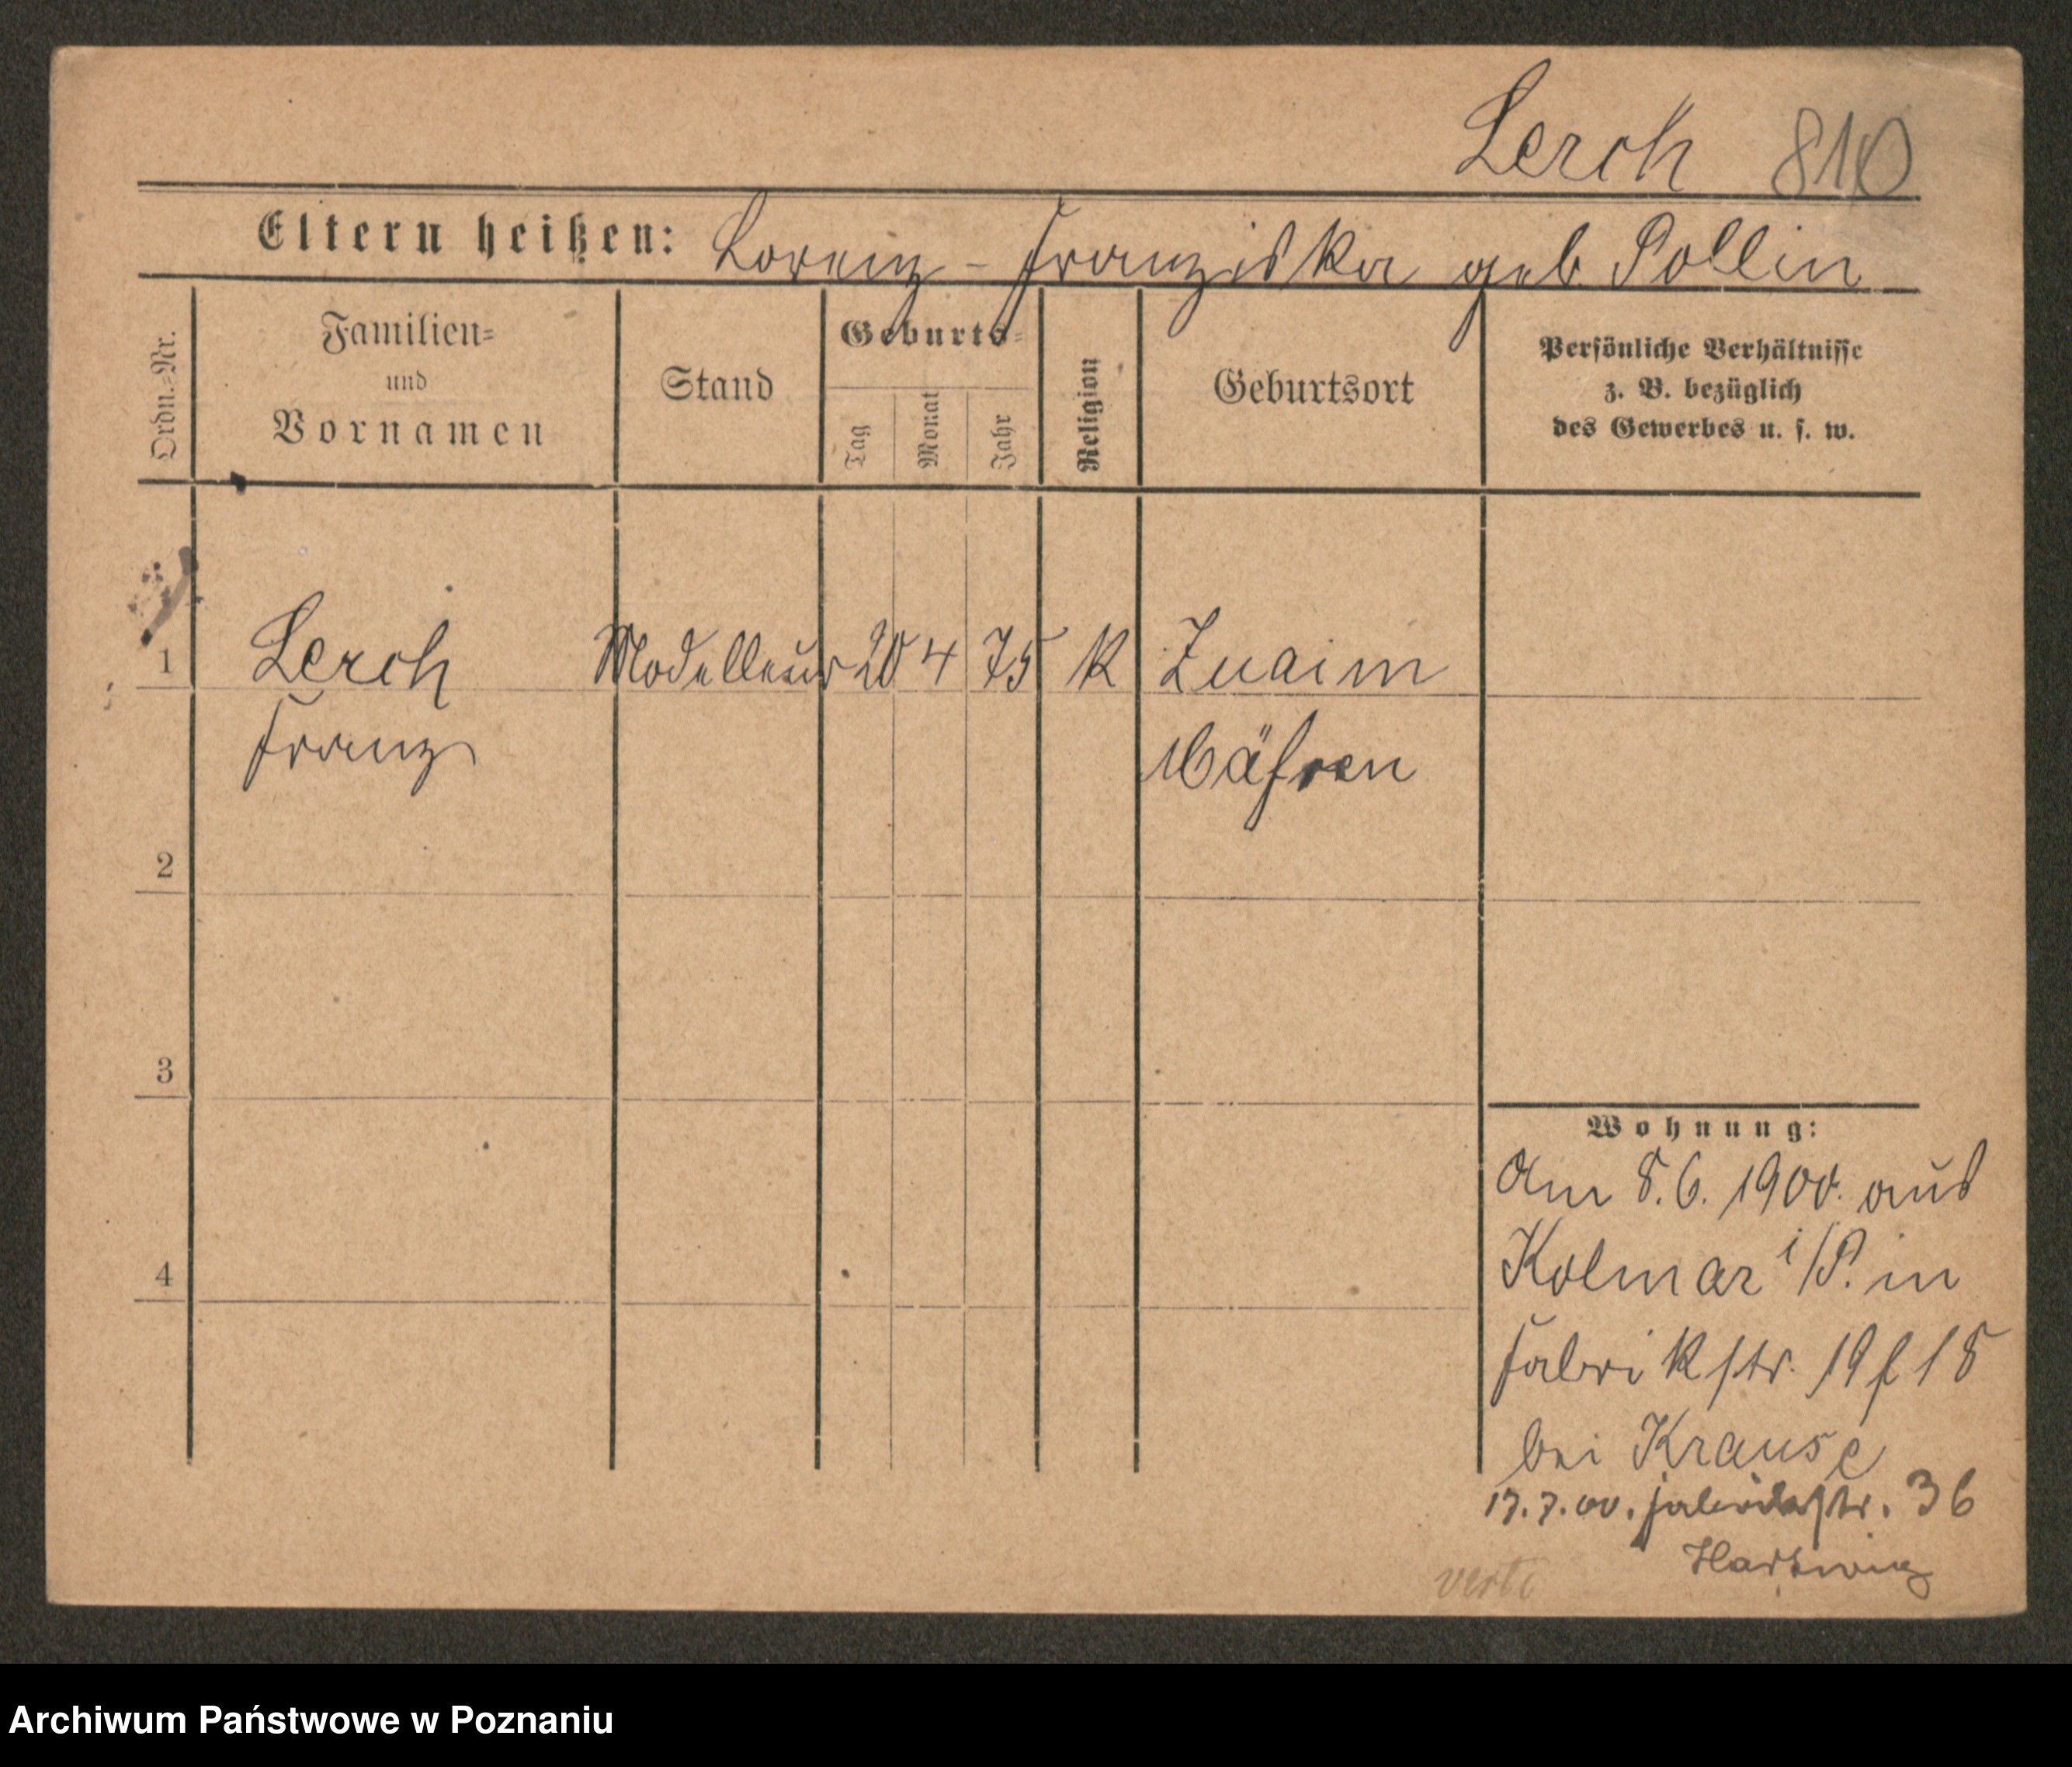 Lerch 810
Eltern heißen: Lorenz - Franziska geb Pollin
Ordn.=Nr.
Familien=
und
Vornamen
Stand
Geburts=
Tag
Monat
Jahr
Religion
Geburtsort
Persönliche Verhältnisse
z. B. bezüglich
des Gewerbes u. s. w.
1 Lerch Modelleur 20 4 75 K Znaim
Franz Mähren
2
3
4
Wohnung:
Am 8.6. 1900. aus
Kolmar i/P. in
Fabrikstr. 19 f 18
bei Krause
17.7.00. Fabrikstr. 36
Hartwig
verte
Archiwum Państwowe w Poznaniu